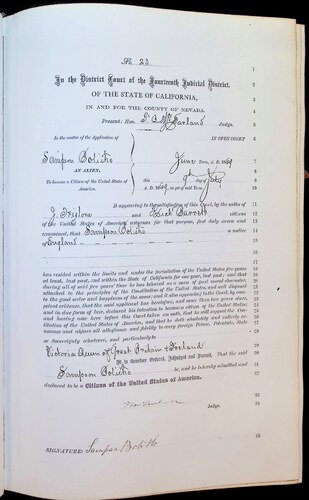 No 23
In the District Court of the Fourteenth Judicial District,
OF THE STATE OF CALIFORNIA,
IN AND FOR THE COUNTY OF NEVADA.
Present: Hon. T. B. McFarland Judge.
In the matter of the Application of
IN OPEN COURT
Sampson Bolitho
June Term, A. D. 1869
AN ALIEN,
9th day of July
To become a Citizen of the United States of
America.
A. D. 1869, as per said Term
It appearing to the satisfaction of this Court, by the oaths of
J. and Barrett citizens
of the United States of America, witnesses for that purpose, first duly sworn and
examined, that Sampson Bolitho a native
of England
has resided within the limits and under the jurisdiction of the United States five years
at least, last past, and within the State of California for one year, last past; and that
during all of said five years' time he has behaved as a man of good moral character,
attached to the principles of the Constitution of the United States, and well disposed
to the good order and happiness of the same; and it also appearing to the Court, by com-
petent evidence, that the said applicant has heretofore, and more than two years since,
and in due form of law, declared his intention to become a citizen of the United States,
and having now here before this Court taken an oath, that he will support the Con-
stitution of the United States of America, and that he doth absolutely and entirely re-
nounce and abjure all allegiance and fidelity to every foreign Prince, Potentate, State
or Sovereignty whatever, and particularly to
Victoria Queen of Great Britain & Ireland
It is therefore Ordered, Adjudged and Decreed, That the said
Sampson Bolitho be, and he hereby admitted and
declared to be a Citizen of the United States of America.
Judge.
SIGNATURE: Sampson Bolitho